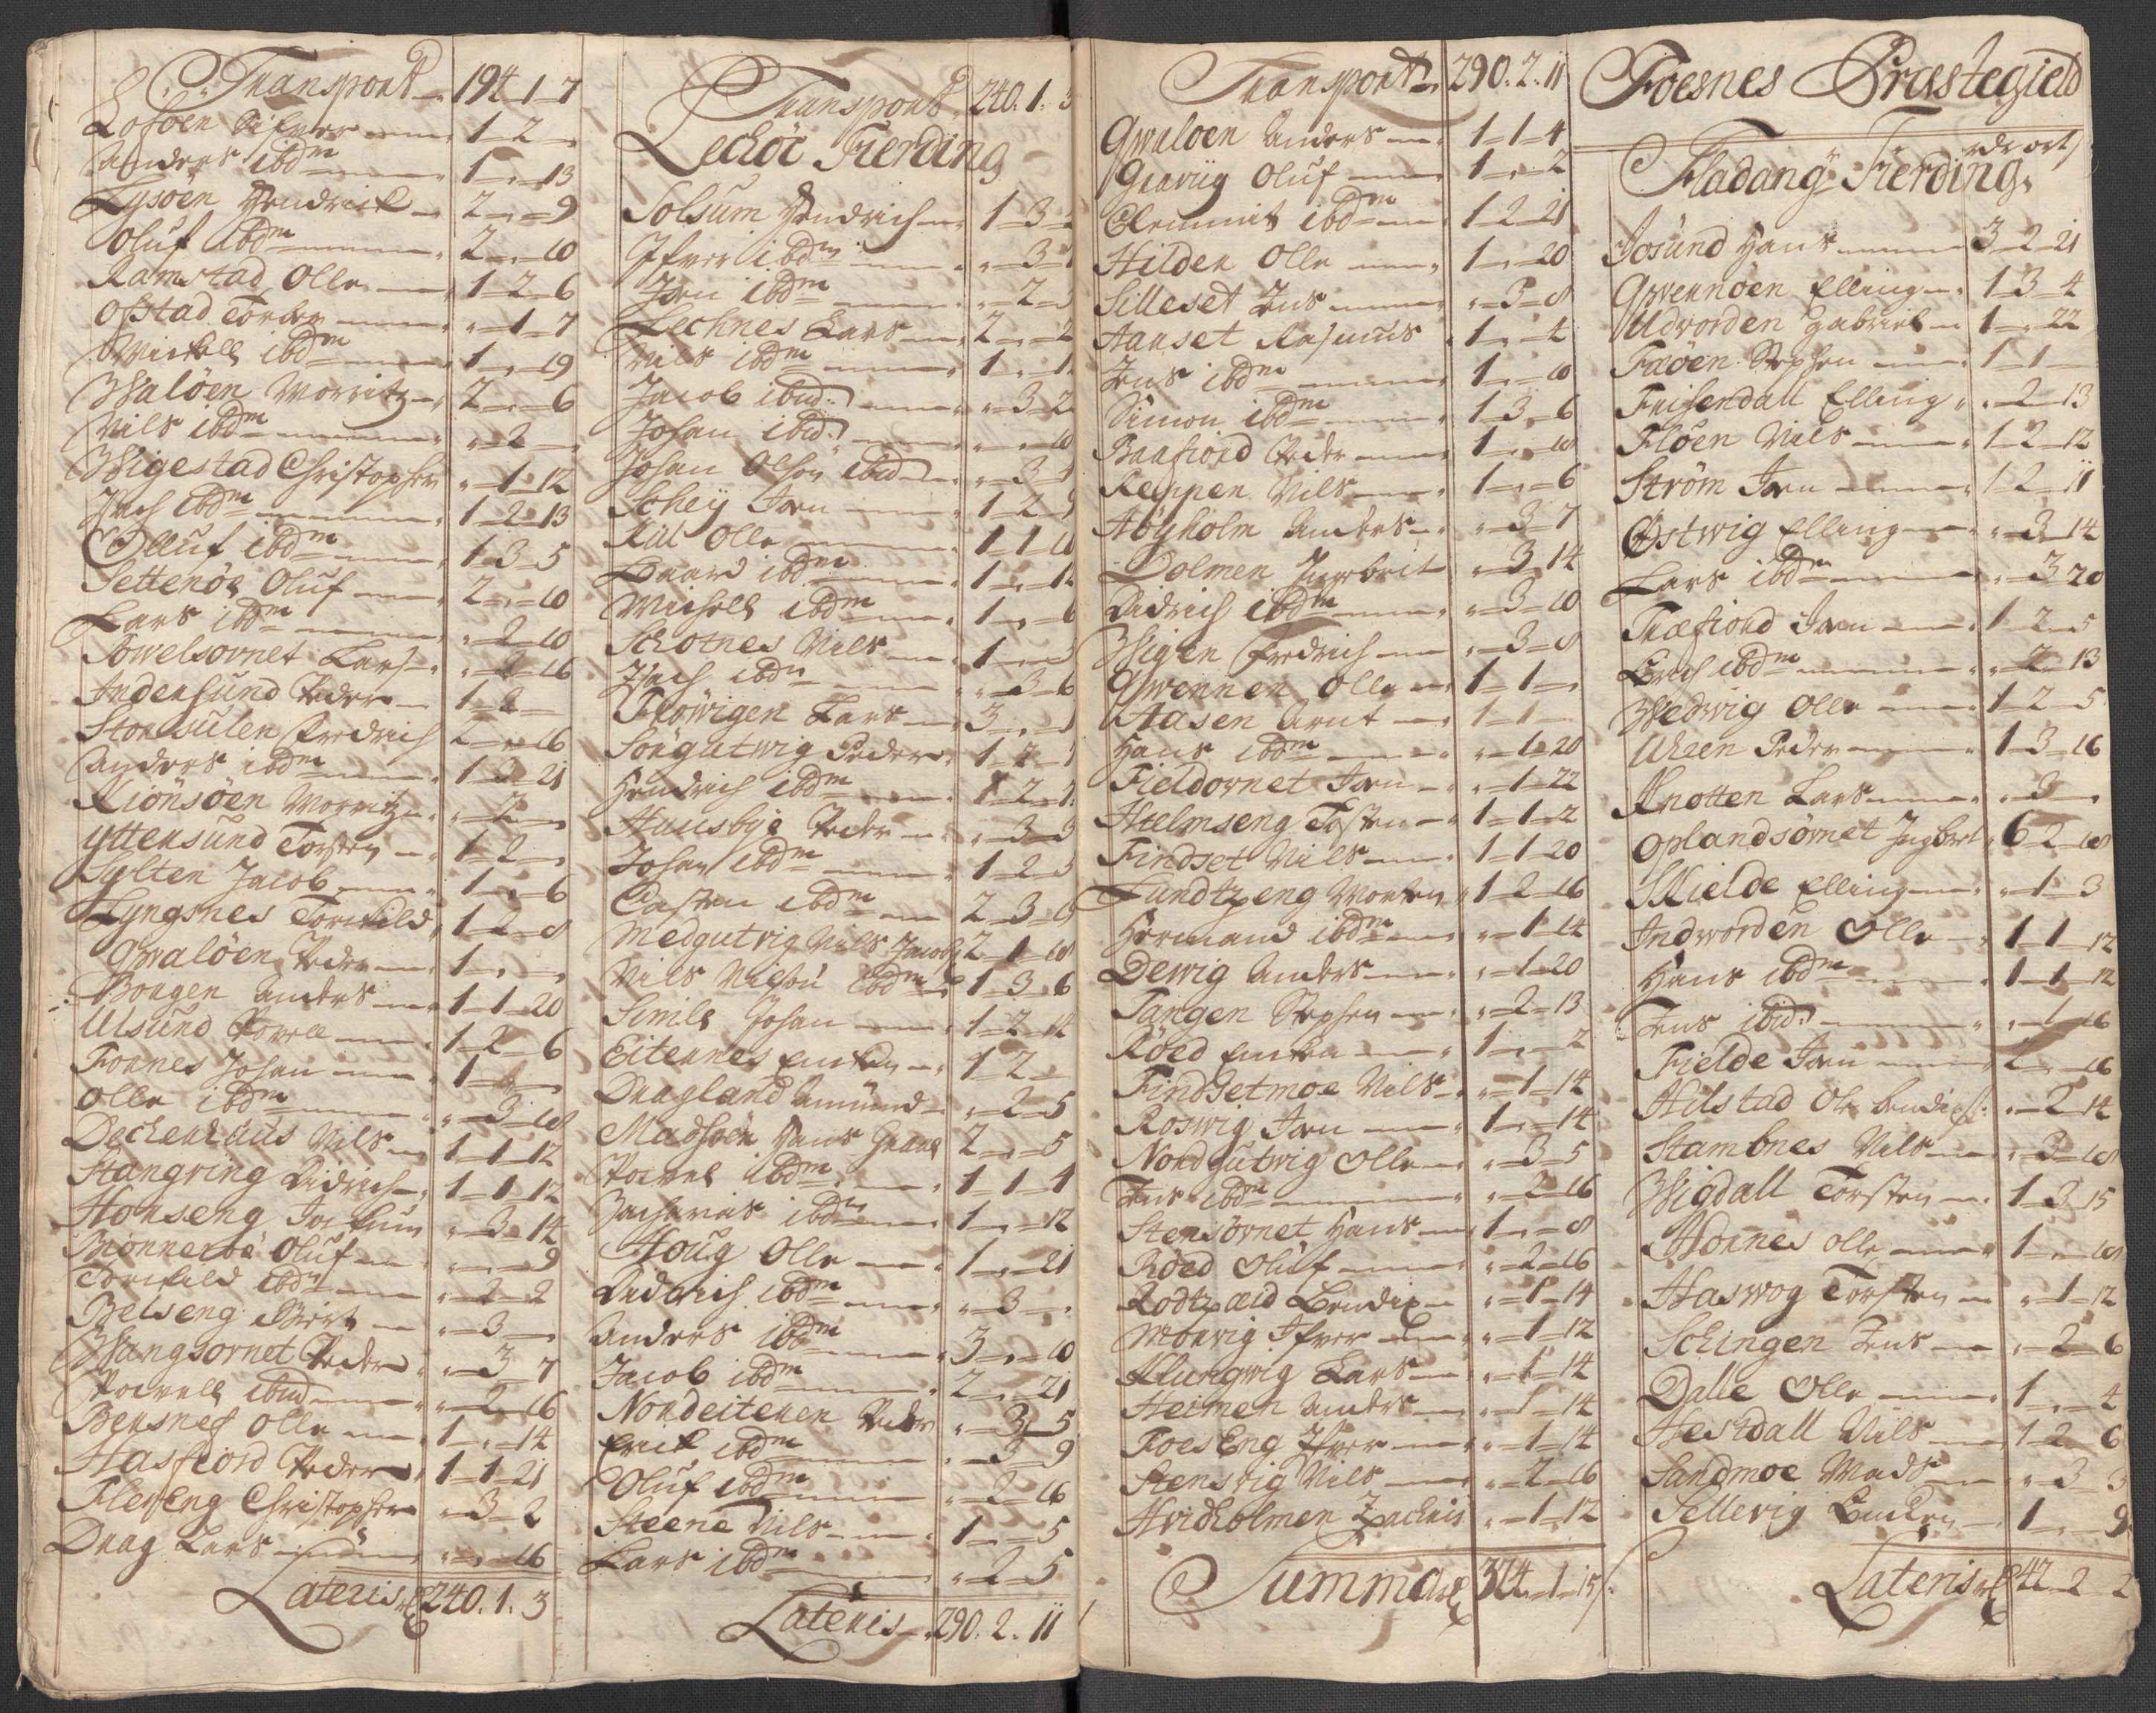 Transport 194 1 7
Loföen Sifver 1 2 -
Anders ibdm 1 " 13
Lysöen Hendrick 2 " 9
Oluf ibdm 2 " 10
Ramstad Olle 1 2 6
Ofstad Torber " 1 7
Mickell ibdm 1 " 19
Waløen Morritz 2 " 6
Nils ibdm " 2 "
Wigestad Christopher " 1 12
Isach ibdm 1 2 13
Olluf ibdm 1 3 5
Settenöe Oluf 2 " 10
Lars ibdm " 2 10
Powelsovnet Lars " 2 16
Indersund Peder 1 2 -
Storsulen Fredrich 2 " 16
Anders ibdm 1 3 21
Kiönsöen Morritz " 2 "
Yttersund Torsten 1 2 "
Sylten Jacob 1 " 6
Lyngsnes Torchild 1 2 8
Qwaløen Peder 1 " "
Borgen Anders 1 1 20
Ulsund Powell 1 2 6
Fornes Johan 1 " "
Olle ibdm " 3 18
Deckenhuus Nils 1 1 12
Stangring Didrich 1 1 12
Horseng Jochum " 3 14
Brönnerbö Oluf " " 9
Torchild ibdm " 2 2
Belseng Birt " 3 "
Wangsornet Peder " 3 7
Powell ibid " 2 16
Bersnes Olle 1 " 14
Hasfiord Peder 1 1 21
Flerseng Christopher " 3 2
Drag Lars " " 16
Lateris 240. 1. 3
Transport 240. 1. 3
Lecköe Fierding
Solsum Hendrich 1 3
Ifver ibdm " 3
Jon ibdm " 2
Lechnes Lars 2 "
Nils ibdm 1 "
Jacob ibid: " 3 2
Johan ibid: " " 10
Johan Olsön ibid " 3 4
Schey Jon 1 2
Kiil Olle 1 1 10
Baard ibdm 1 "
Michell ibdm 1 " 6
Schotnes Nils 1 "
Isach ibdm " 3 6
Flöwigen Lars 3 "
Sörgutwig Peder 1 2
Hendrich ibdm 1 2
Huusbye Peder " 3 3
Johan ibdm 1 2
Casten ibdm 2 3
Medgutvig Nils Jacobs 2 1 18
Nils Nilsön ibdm 1 3 6
Simle Johan 1 2 14
Eitennes Enken 1 2 -
Dragland Amund " 2 5
Madsöen Hans Grane 2 " 5
Powel ibdm 1 1 4
Zacharias ibdm 1 " 12
Houg Olle 1 " 21
Didrich ibdm " 3 "
Anders ibdm 3 " 10
Jacob ibdm 2 " 21
Nordeiteren Peder " 3 5
Erick ibdm " 3 9
Oluf ibdm " 2 16
Steene Nils 1 " 5
Lars ibdm " 2 5
Lateris 290. 2. 11
Transport 290. 2. 11
Qwaløen Anders 1 1 4
Gravüg Oluf 1 " 2
Clemmit ibdm 1 2 21
Hilden Olle 1 " 20
Silleset Jens " 3 8
Aanset Rasmus 1 " 4
Jens ibdm 1 " 10
Simon ibdm 1 3 6
Baafiord Peder 1 " 10
Reppen Nils 1 " 6
Höyholm Anders " 3 7
Dolmen Ingebrit " 3 14
Didrich ibdm " 3 10
Wigen Fredrich " 3 8
Qwennen Olle 1 1 "
Aasen Arnt 1 1 -
Hans ibdm " 1 20
Fieldovnet Jon " 1 22
Hielmseng Tosten 1 1 2
Findset Nils 1 1 20
Lundtzeng Morten 1 2 16
Hermand ibdm " 1 14
Dewig Anders " 1 20
Tangen Stephen " 2 13
Röed Enken 1 " 2
Findsetmoe Nils " 1 14
Roswig Jon 1 " 14
Nordgutwig Olle " 3 5
Jens ibdm " 2 16
Stensövnet Hans 1 " 8
Röed Oluf " 2 16
Rodtzæid Bendix " 1 14
Morvig Ifver " 1 12
Klungwig Lars " 1 14
Heimen Anders " 1 14
FoesEng Ifver " 1 14
Stensvig Nils " 2 16
Hvidholmen Zachris " 1 12
Summa 324 1 15
Foesnes Præstegield
rdr ort
Fladang Fierding
Josund Hans 3 2 21
Qwernöen Elling 1 3 4
Udvorden Gabriel 1 " 22
Fröen Stephen 1 1 -
Freisendall Elling " 2 13
Flöen Nils 1 2 12
Ström Jon 1 2 11
Östwig Elling " 3 14
Lars ibdm " 3 20
Træfiord Jon 1 2 5
Erich ibdm " 2 13
Wedwig Olle 1 2 5
Uhren Peder 1 3 16
Knotten Lars " 3 "
Oplandsövnet Ingbret 6 2 18
Skielde Elling " 1 3
Indworden Olle 1 1 12
Hans ibdm 1 1 12
Jens ibid: " 1 16
Fielde Jon 2 " 16
Hilstad Ole Bendix " 2 14
Stambnes Nils " 3 18
Wigdall Torsten 1 3 15
Hornes Olle 1 " 18
Haswog Torsten " 1 12
Schingen Jens " 2 6
Dalle Olle 1 " 4
Hestdall Nils 1 2 6
Sandmoe Mads " 3 3
Sellevig Encken 1 " 9
Lateris 42 2 2